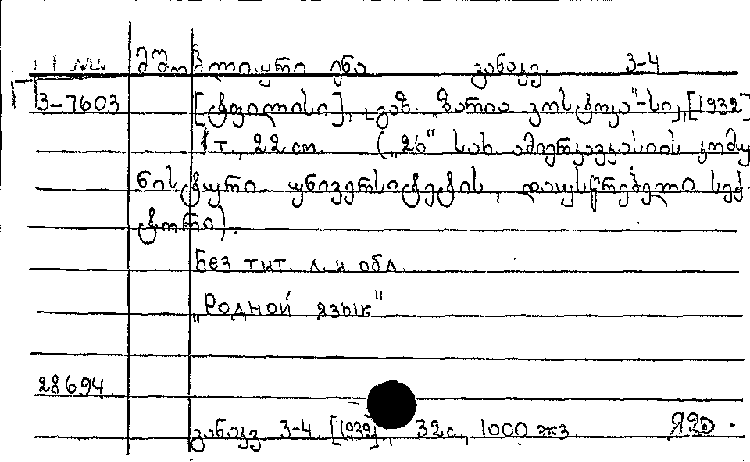 მშობლიური ენა კანაკვ. 3-4
3-7603 [ტფილისი], „გაზ. ზარია ვოსტოკა"-სი, [1932]
1 т., 22 см. („26" სახ. ამიერკავკასიის კომუ
ნისტური უნივერსიტეტის, დაუსწრებელი სექ-
ტორი).
Без тит. л. и обл.
„Родной язык"
28694
3-4 [1932], 32 с, 1000 экз